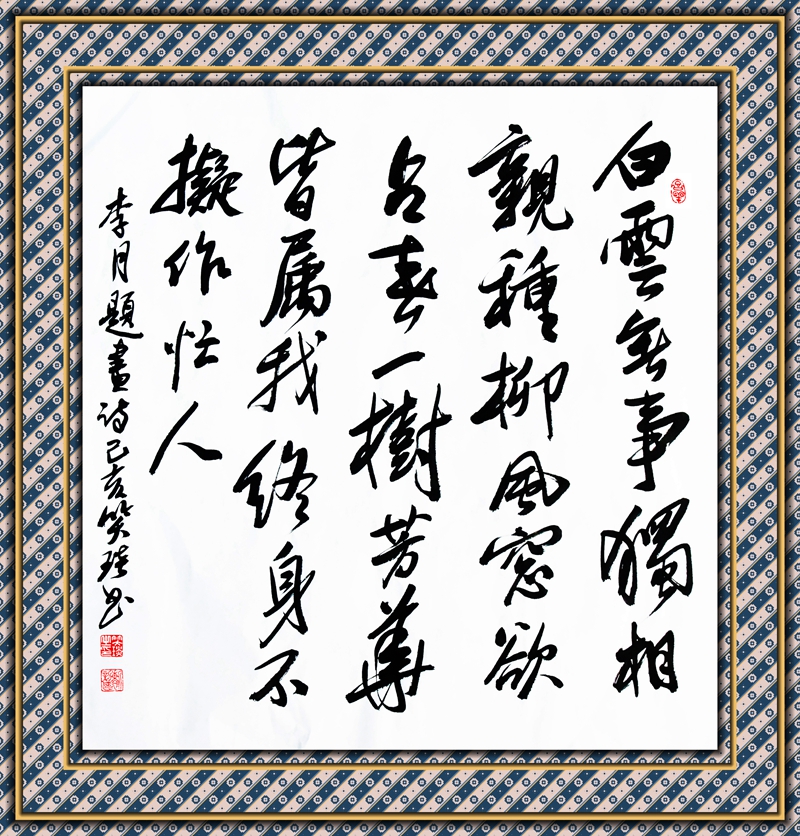 白雲無事獨相
親種柳風窓欲
占春一樹芳華
皆属我終身不
擬作忙人
李月題畫诗己亥笑书